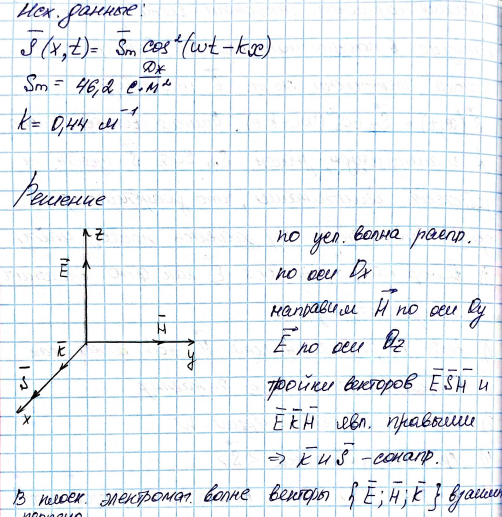 Исх. данные:
S̅(x,t) = S̅m cos²(ωt-kx)
Sm = 46,2 Дж/с·м²
k = 0,44 м⁻¹
Решение
z
E̅
H̅
K̅
y
S̅
x
по усл. волна распр.
по оси Ox
направим H⃗ по оси Oy
E⃗ по оси Oz
тройки векторов E̅S̅H̅ и
E̅k̅H̅ явл. правыми
⇒ k̅ и S̅ - сонапр.
В плоск. электромаг. волне векторы {E̅; H̅; K̅} взаим